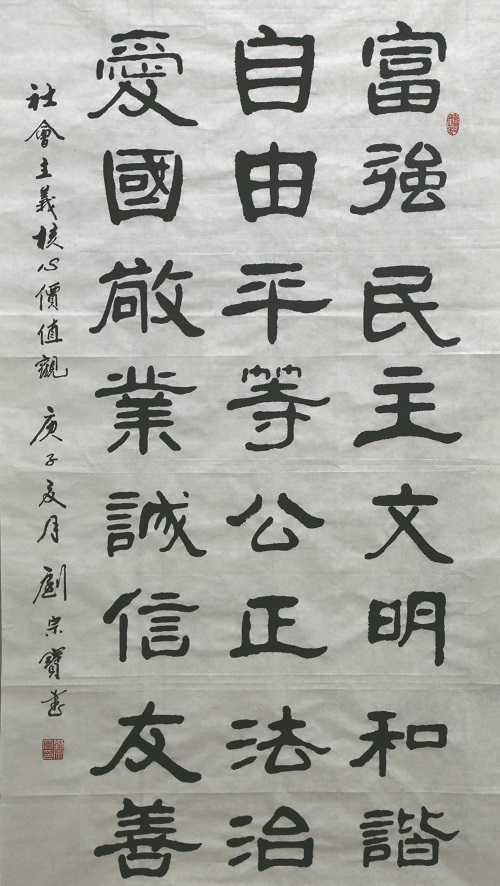 富強民主文明和諧
自由平等公正法治
愛國敬業誠信友善
社會主義核心價值觀 庚子夏月 劉宗寶書